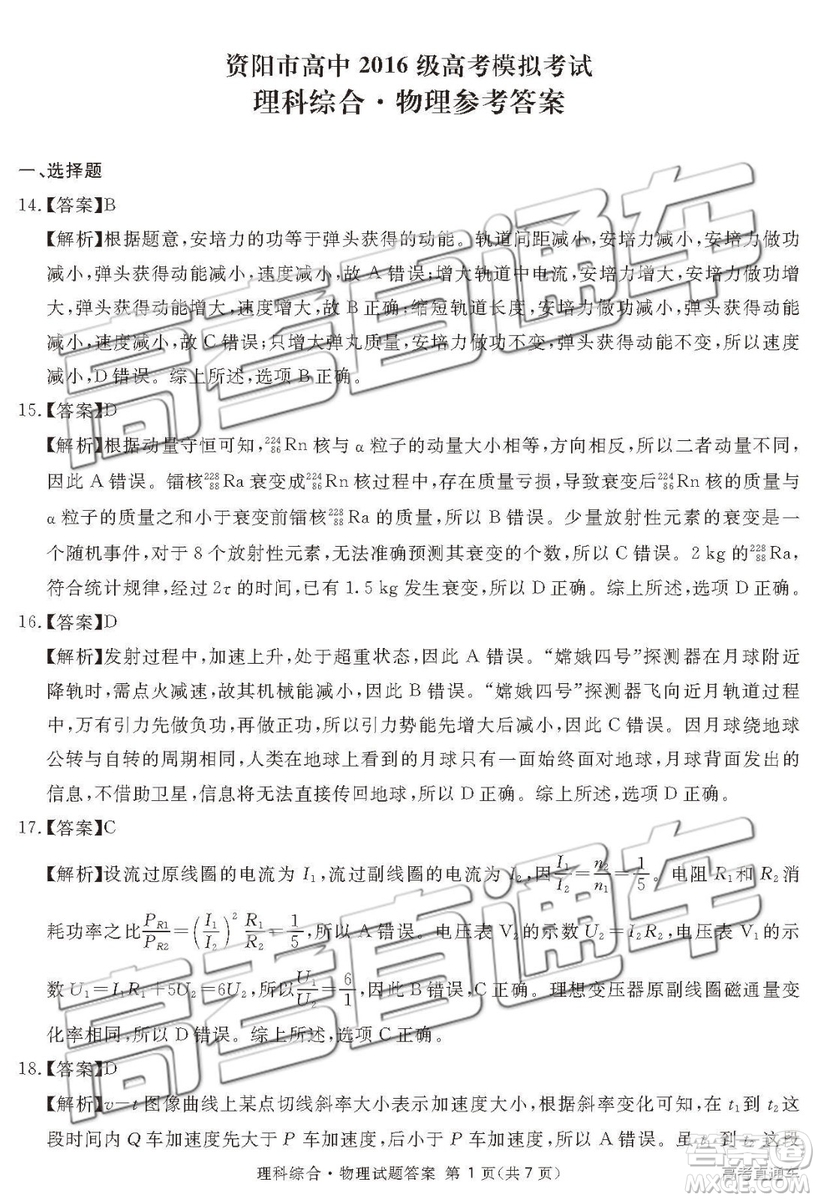 资阳市高中 2016 级高考模拟考试
理科综合·物理参考答案
一、选择题
14.【答案】B
【解析】根据题意,安培力的功等于弹头获得的动能。轨道间距减小,安培力减小,安培力做功
减小,弹头获得动能减小,故 A 错误;增大轨道中电流,安培力增大,安培力做功增
大,弹头获得动能增大,速度增大,故 B 正确;缩短轨道长度,安培力做功减小,弹头获得动能
减小,速度减小,故 C 错误;只增大弹丸质量,安培力做功不变,弹头获得动能不变,所以速度
减小,D 错误。综上所述,选项 B 正确。
15.【答案】D
【解析】根据动量守恒可知,²²⁴₈₆Rn 核与 α 粒子的动量大小相等,方向相反,所以二者动量不同,
因此 A 错误。镭核²²⁸₈₈Ra 衰变成²²⁴₈₆Rn 核过程中,存在质量亏损,导致衰变后²²⁴₈₆Rn 核的质量与
α 粒子的质量之和小于衰变前镭核²²⁸₈₈Ra 的质量,所以 B 错误。少量放射性元素的衰变是一
个随机事件,对于 8 个放射性元素,无法准确预测其衰变的个数,所以 C 错误。2 kg 的²²⁸₈₈Ra,
符合统计规律,经过 2τ 的时间,已有 1.5 kg 发生衰变,所以 D 正确。综上所述,选项 D 正确。
16.【答案】D
【解析】发射过程中,加速上升,处于超重状态,因此 A 错误。“嫦娥四号”探测器在月球附近
降轨时,需点火减速,故其机械能减小,因此 B 错误。“嫦娥四号”探测器飞向近月轨道过程
中,万有引力先做负功,再做正功,势能先增大后减小,因此 C 错误。因月球绕地球
公转与自转的周期相同,人类在地球上看到的月球只有一面始终面对地球,月球背面发出的
信息,不借助卫星,信息无法直接传回地球,所以 D 正确。综上所述,选项 D 正确。
17.【答案】C
【解析】设流过原线圈的电流为 I₁,流过副线圈的电流为 I₂,因 I₁/I₂=n₂/n₁=1/5。电阻 R₁ 和 R₂ 消
耗功率之比 P_R1/P_R2=(I₁/I₂)² R₁/R₂=1/5,所以 A 错误。电压表 V₂ 的示数 U₂=I₂R₂,电压表 V₁ 的示
数 U₁=I₁R₁+5U₂=6U₂,所以 U₁/U₂=6/1,因此 C 正确。理想变压器原副线圈磁通量变
化率相同,所以 D 错误。综上所述,选项 C 正确。
18.【答案】D
【解析】v-t 图像曲线上某点切线斜率大小表示加速度大小,根据斜率变化可知,在 t₁ 到 t₂ 这
段时间内 Q 车加速度先大于 P 车加速度,后小于 P 车加速度,所以 A 错误。虽 t₁ 到 t₂ 这段
理科综合·物理试题答案 第 1 页(共 7 页)
高考直通车